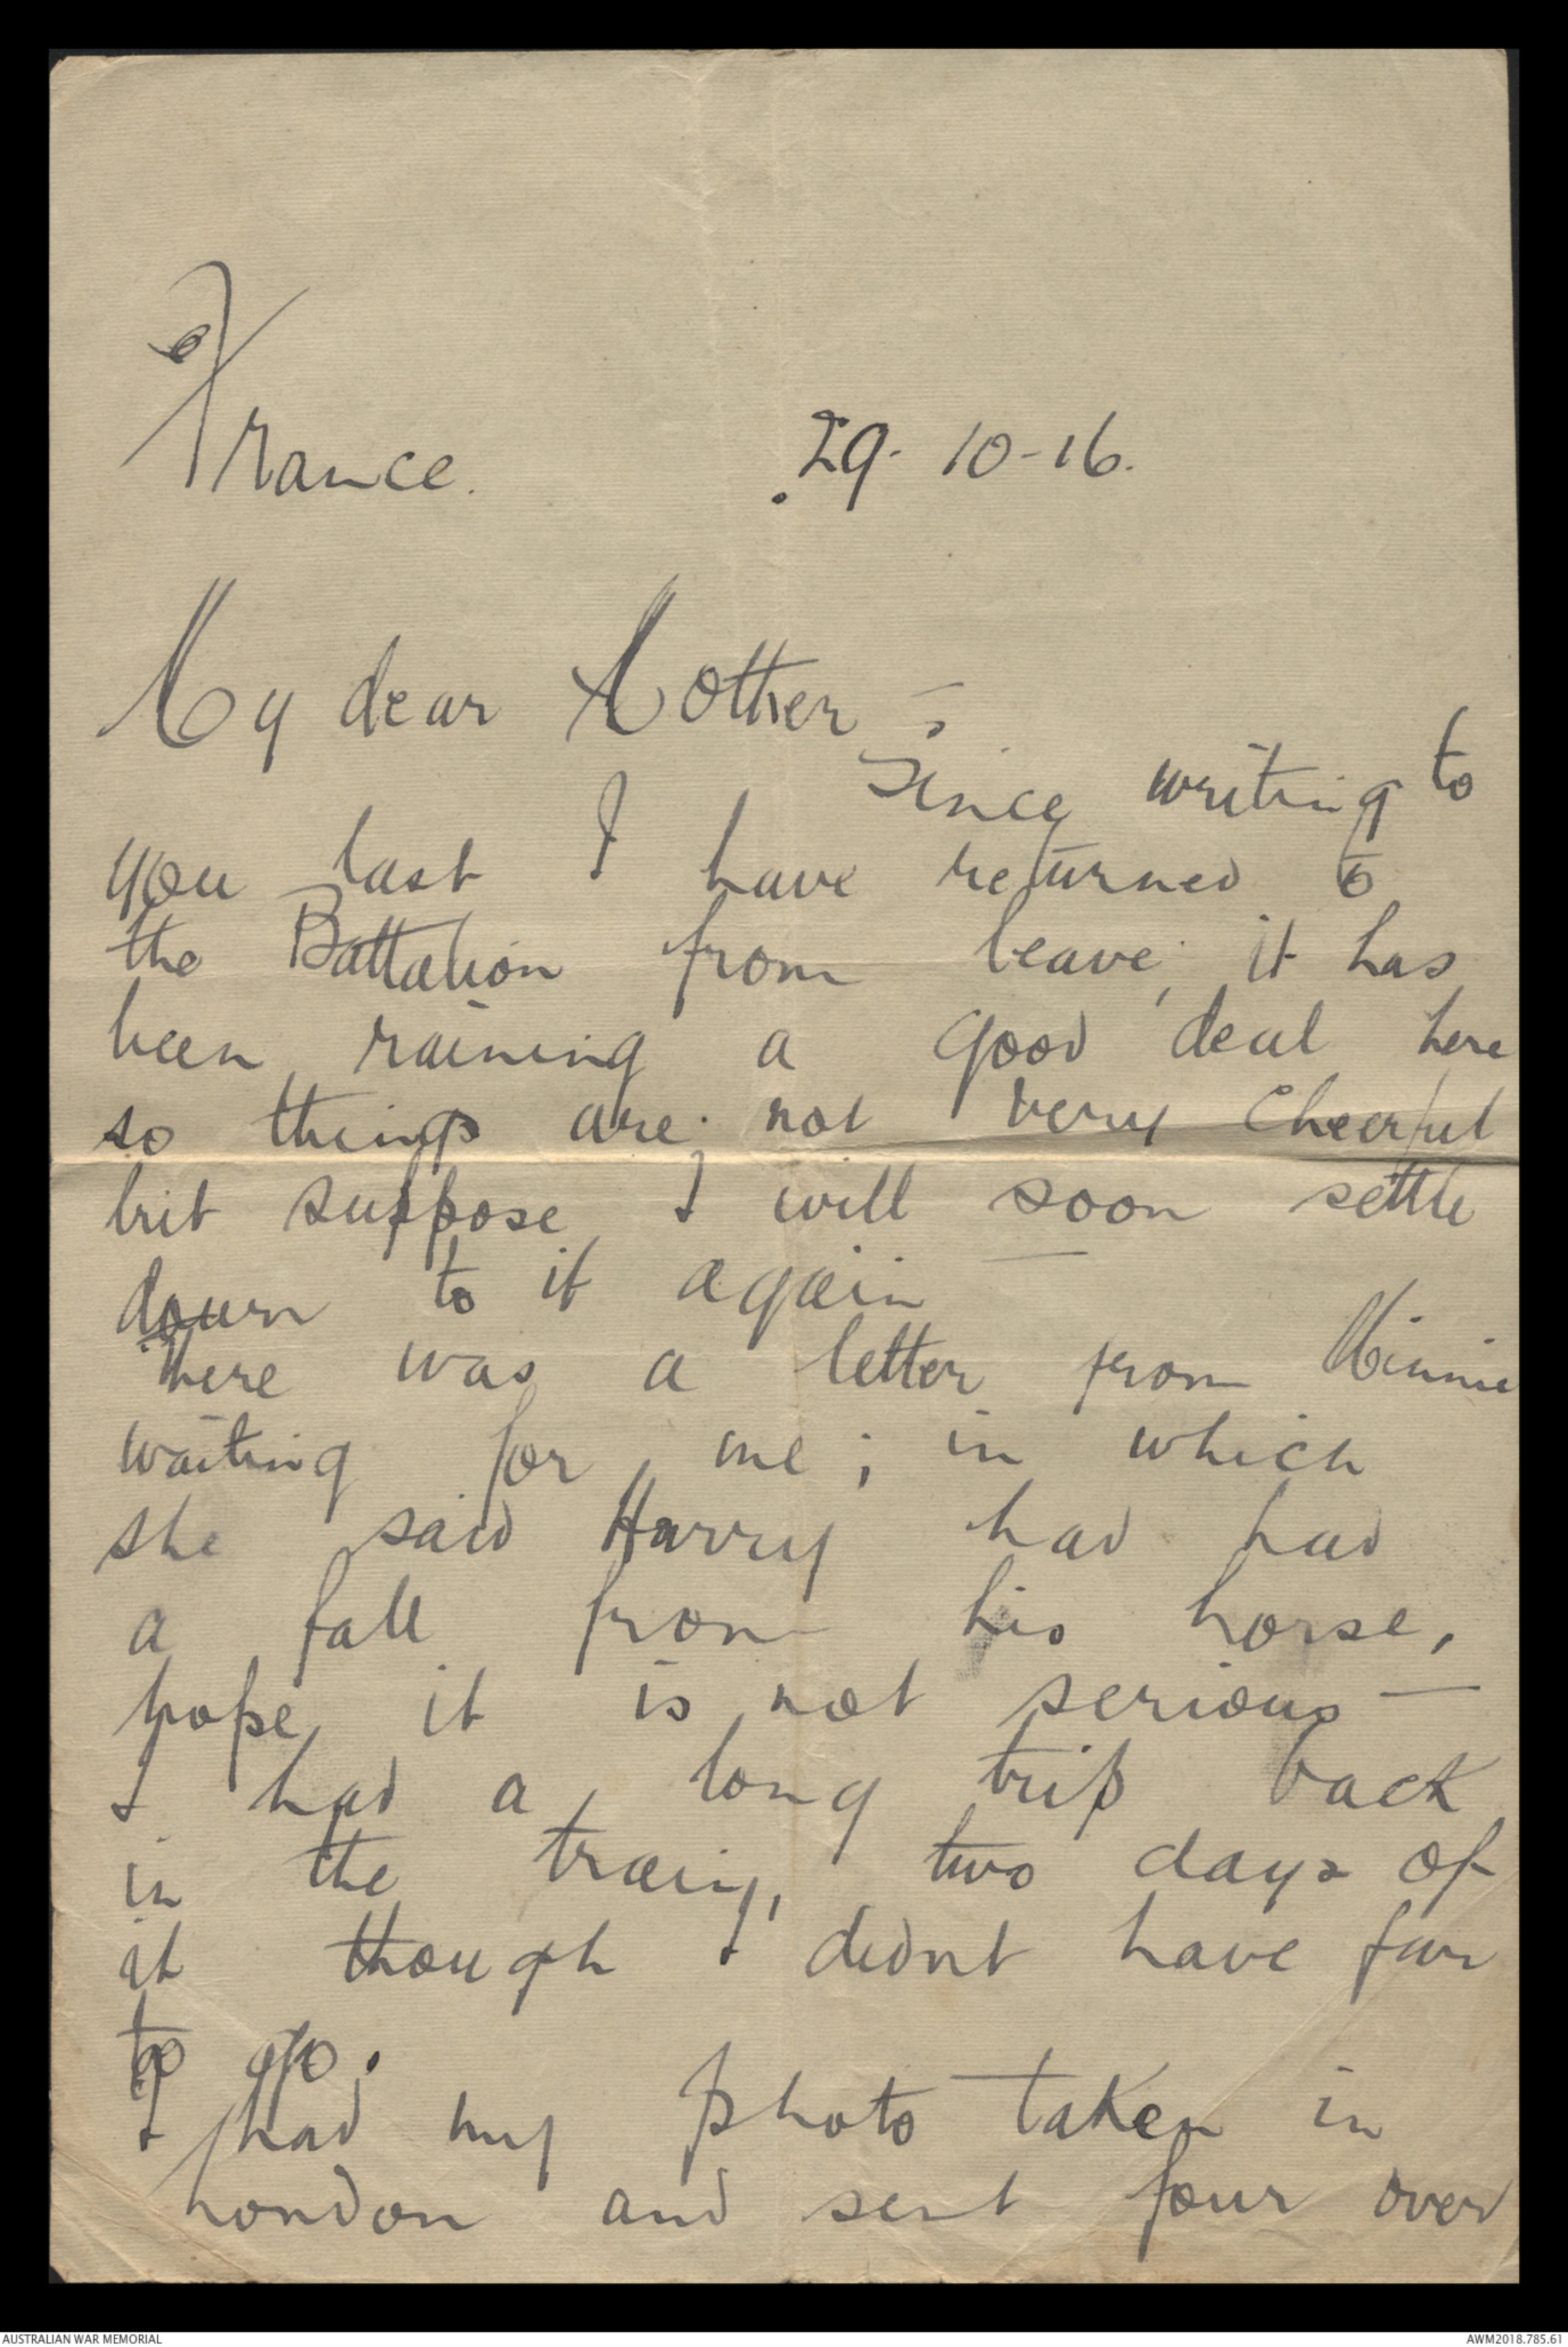 France. 29-10-16.
My dear Mother :-
Since writing to
you last I have returned to
the Battalion from leave, it has
been raining a good deal here
so things are not very cheerful
but suppose I will soon settle
down to it again —
There was a letter from Minnie
waiting for me; in which
she said Harry had had
a fall from his horse,
hope it is not serious —
I had a long trip back
in the train, two days of
it though I didnt have far
to go.
I had my photo taken in
London and sent four over
AUSTRALIAN WAR MEMORIAL AWM2018.785.61